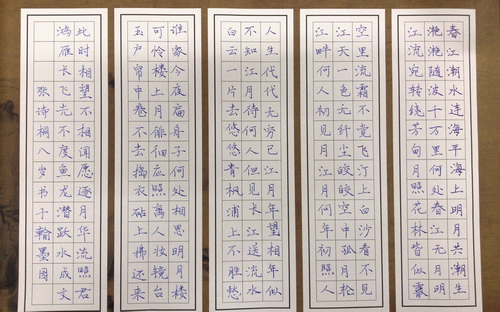 春江潮水连海平海上明月共潮生
滟滟随波千万里何处春江无月明
江流宛转绕芳甸月照花林皆似霰
空里流霜不觉飞汀上白沙看不见
江天一色无纤尘皎皎空中孤月轮
江畔何人初见月江月何年初照人
人生代代无穷已江月年年望相似
不知江月待何人但见长江送流水
白云一片去悠悠青枫浦上不胜愁
谁家今夜扁舟子何处相思明月楼
可怜楼上月徘徊应照离人妆镜台
玉户帘中卷不去捣衣砧上拂还来
此时相望不相闻愿逐月华流照君
鸿雁长飞光不度鱼龙潜跃水成文
张诗桐八岁书于翰墨园